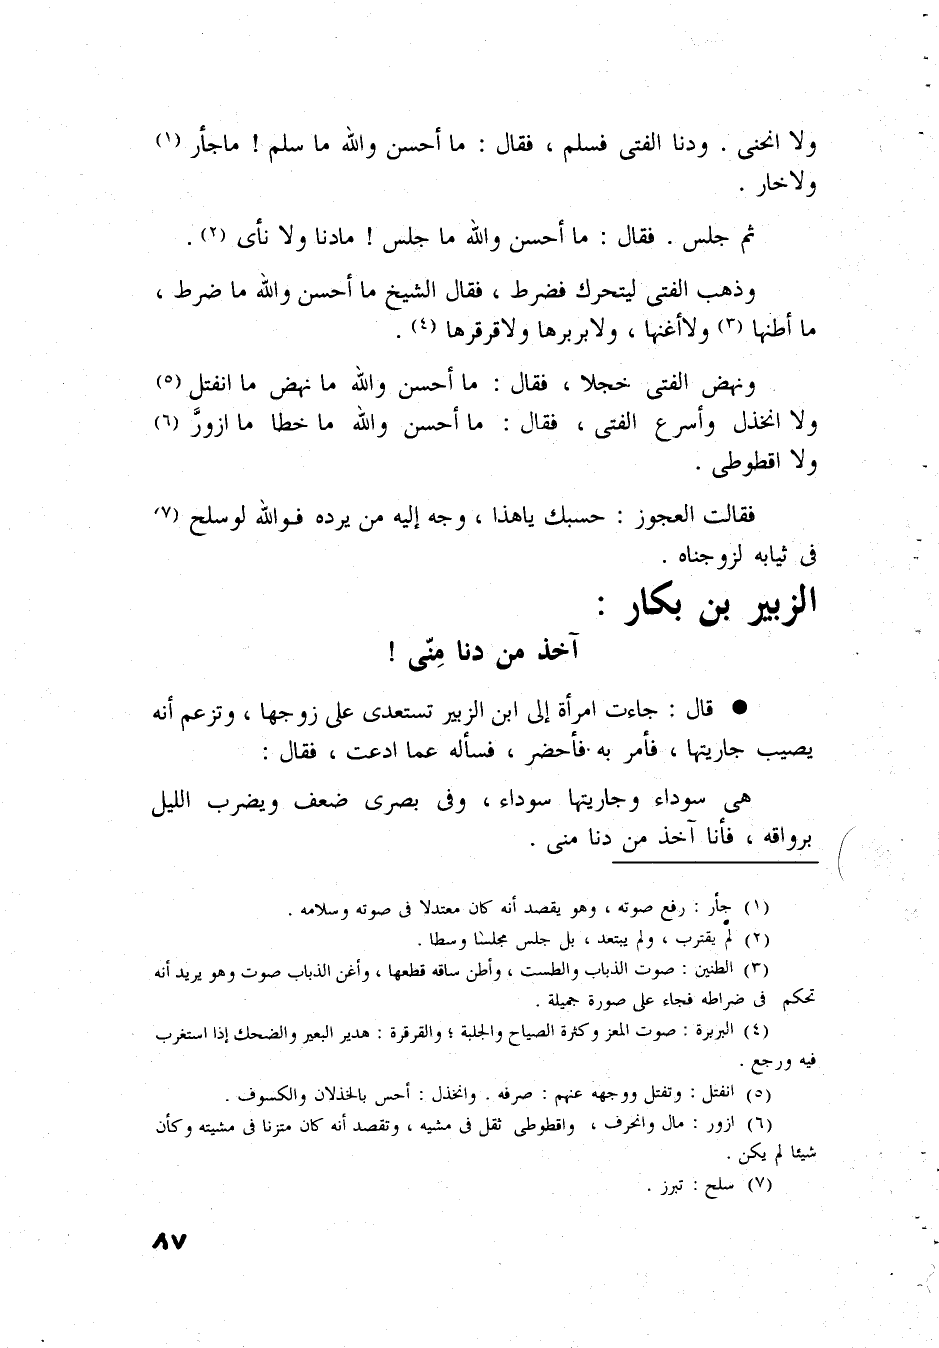 ولا انحنى . ودنا الفتى فسلم ، فقال : ما أحسن والله ما سلم ! ماجأر (١)
ولاخار .
ثم جلس . فقال : ما أحسن والله ما جلس ! مادنا ولا نأى (٢) .
وذهب الفتى ليتحرك فضرط ، فقال الشيخ ما أحسن والله ما ضرط ،
ما أطنها (٣) ولاأغنها ، ولابربرها ولاقرقرها (٤) .
ونهض الفتى خجلا ، فقال : ما أحسن والله ما نهض ما انفتل (٥)
ولا انخذل وأسرع الفتى ، فقال : ما أحسن والله ما خطا ما ازورَّ (٦)
ولا اقطوطى .
فقالت العجوز : حسبك ياهذا ، وجه إليه من يرده فوالله لوسلح (٧)
فى ثيابه لزوجناه .
الزبير بن بكار :
آخذ من دنا مِنّى !
● قال : جاءت امرأة إلى ابن الزبير تستعدى على زوجها ، وتزعم أنه
يصيب جاريتها ، فأمر به فأحضر ، فسأله عما ادعت ، فقال :
هى سوداء وجاريتها سوداء ، وفى بصرى ضعف ويضرب الليل
برواقه ، فأنا آخذ من دنا منى .
(١) جأر : رفع صوته ، وهو يقصد أنه كان معتدلا فى صوته وسلامه .
(٢) لم يقترب ، ولم يبتعد ، بل جلس مجلسا وسطا .
(٣) الطنين : صوت الذباب والطست ، وأطن ساقه قطعها ، وأغن الذباب صوت وهو يريد أنه
تحكم فى ضراطه فجاء على صورة جميلة .
(٤) البربرة : صوت المعز وكثرة الصياح والجلبة ؛ والقرقرة : هدير البعير والضحك إذا استغرب
فيه ورجع .
(٥) انفتل : وتفتل ووجهه عنهم : صرفه . وانخذل : أحس بالخذلان والكسوف .
(٦) ازور : مال وانحرف ، واقطوطى ثقل فى مشيه ، وتقصد أنه كان متزنا فى مشيته وكأن
شيئا لم يكن .
(٧) سلح : تبرز .
٨٧